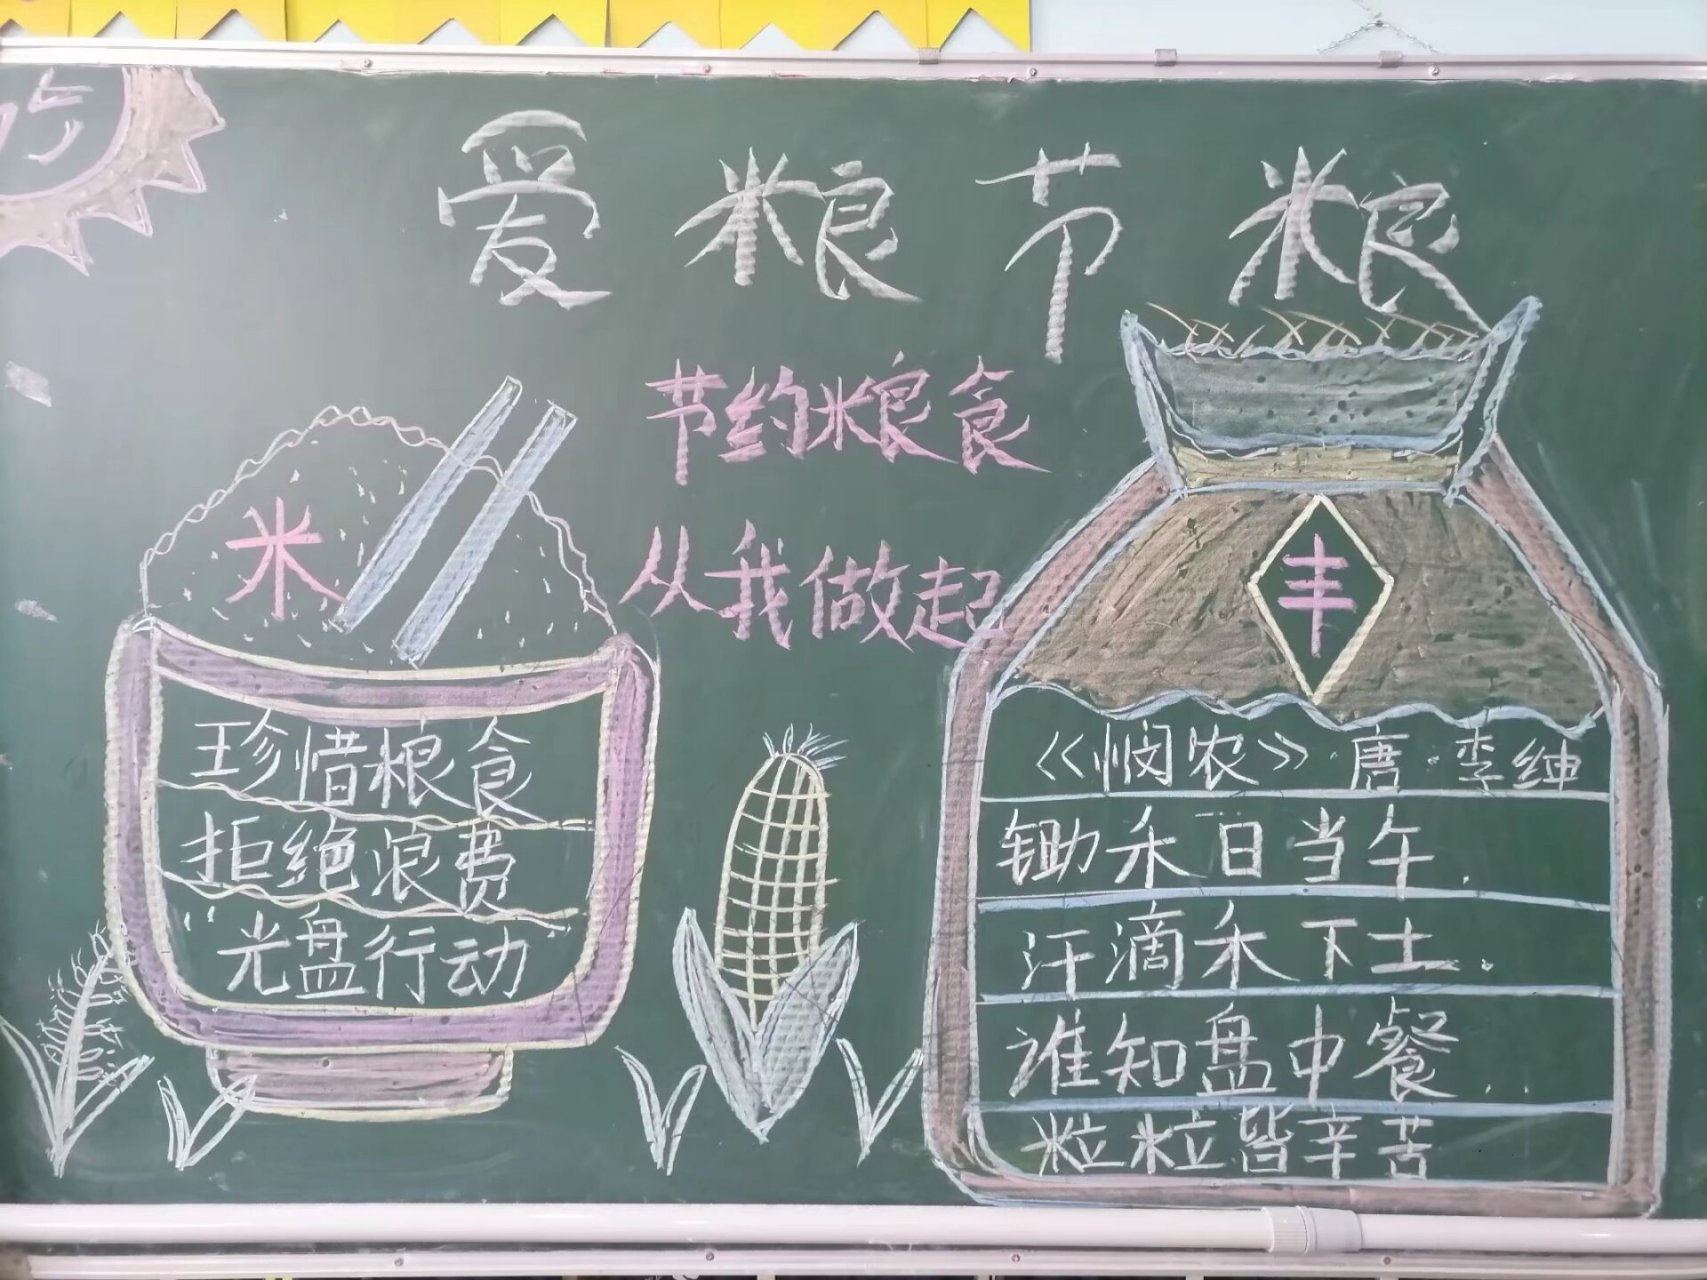 爱粮节粮
节约粮食
从我做起
米
珍惜粮食
拒绝浪费
“光盘行动
丰
《悯农》·唐·李绅
锄禾日当午.
汗滴禾下土。
谁知盘中餐..
粒粒皆辛苦